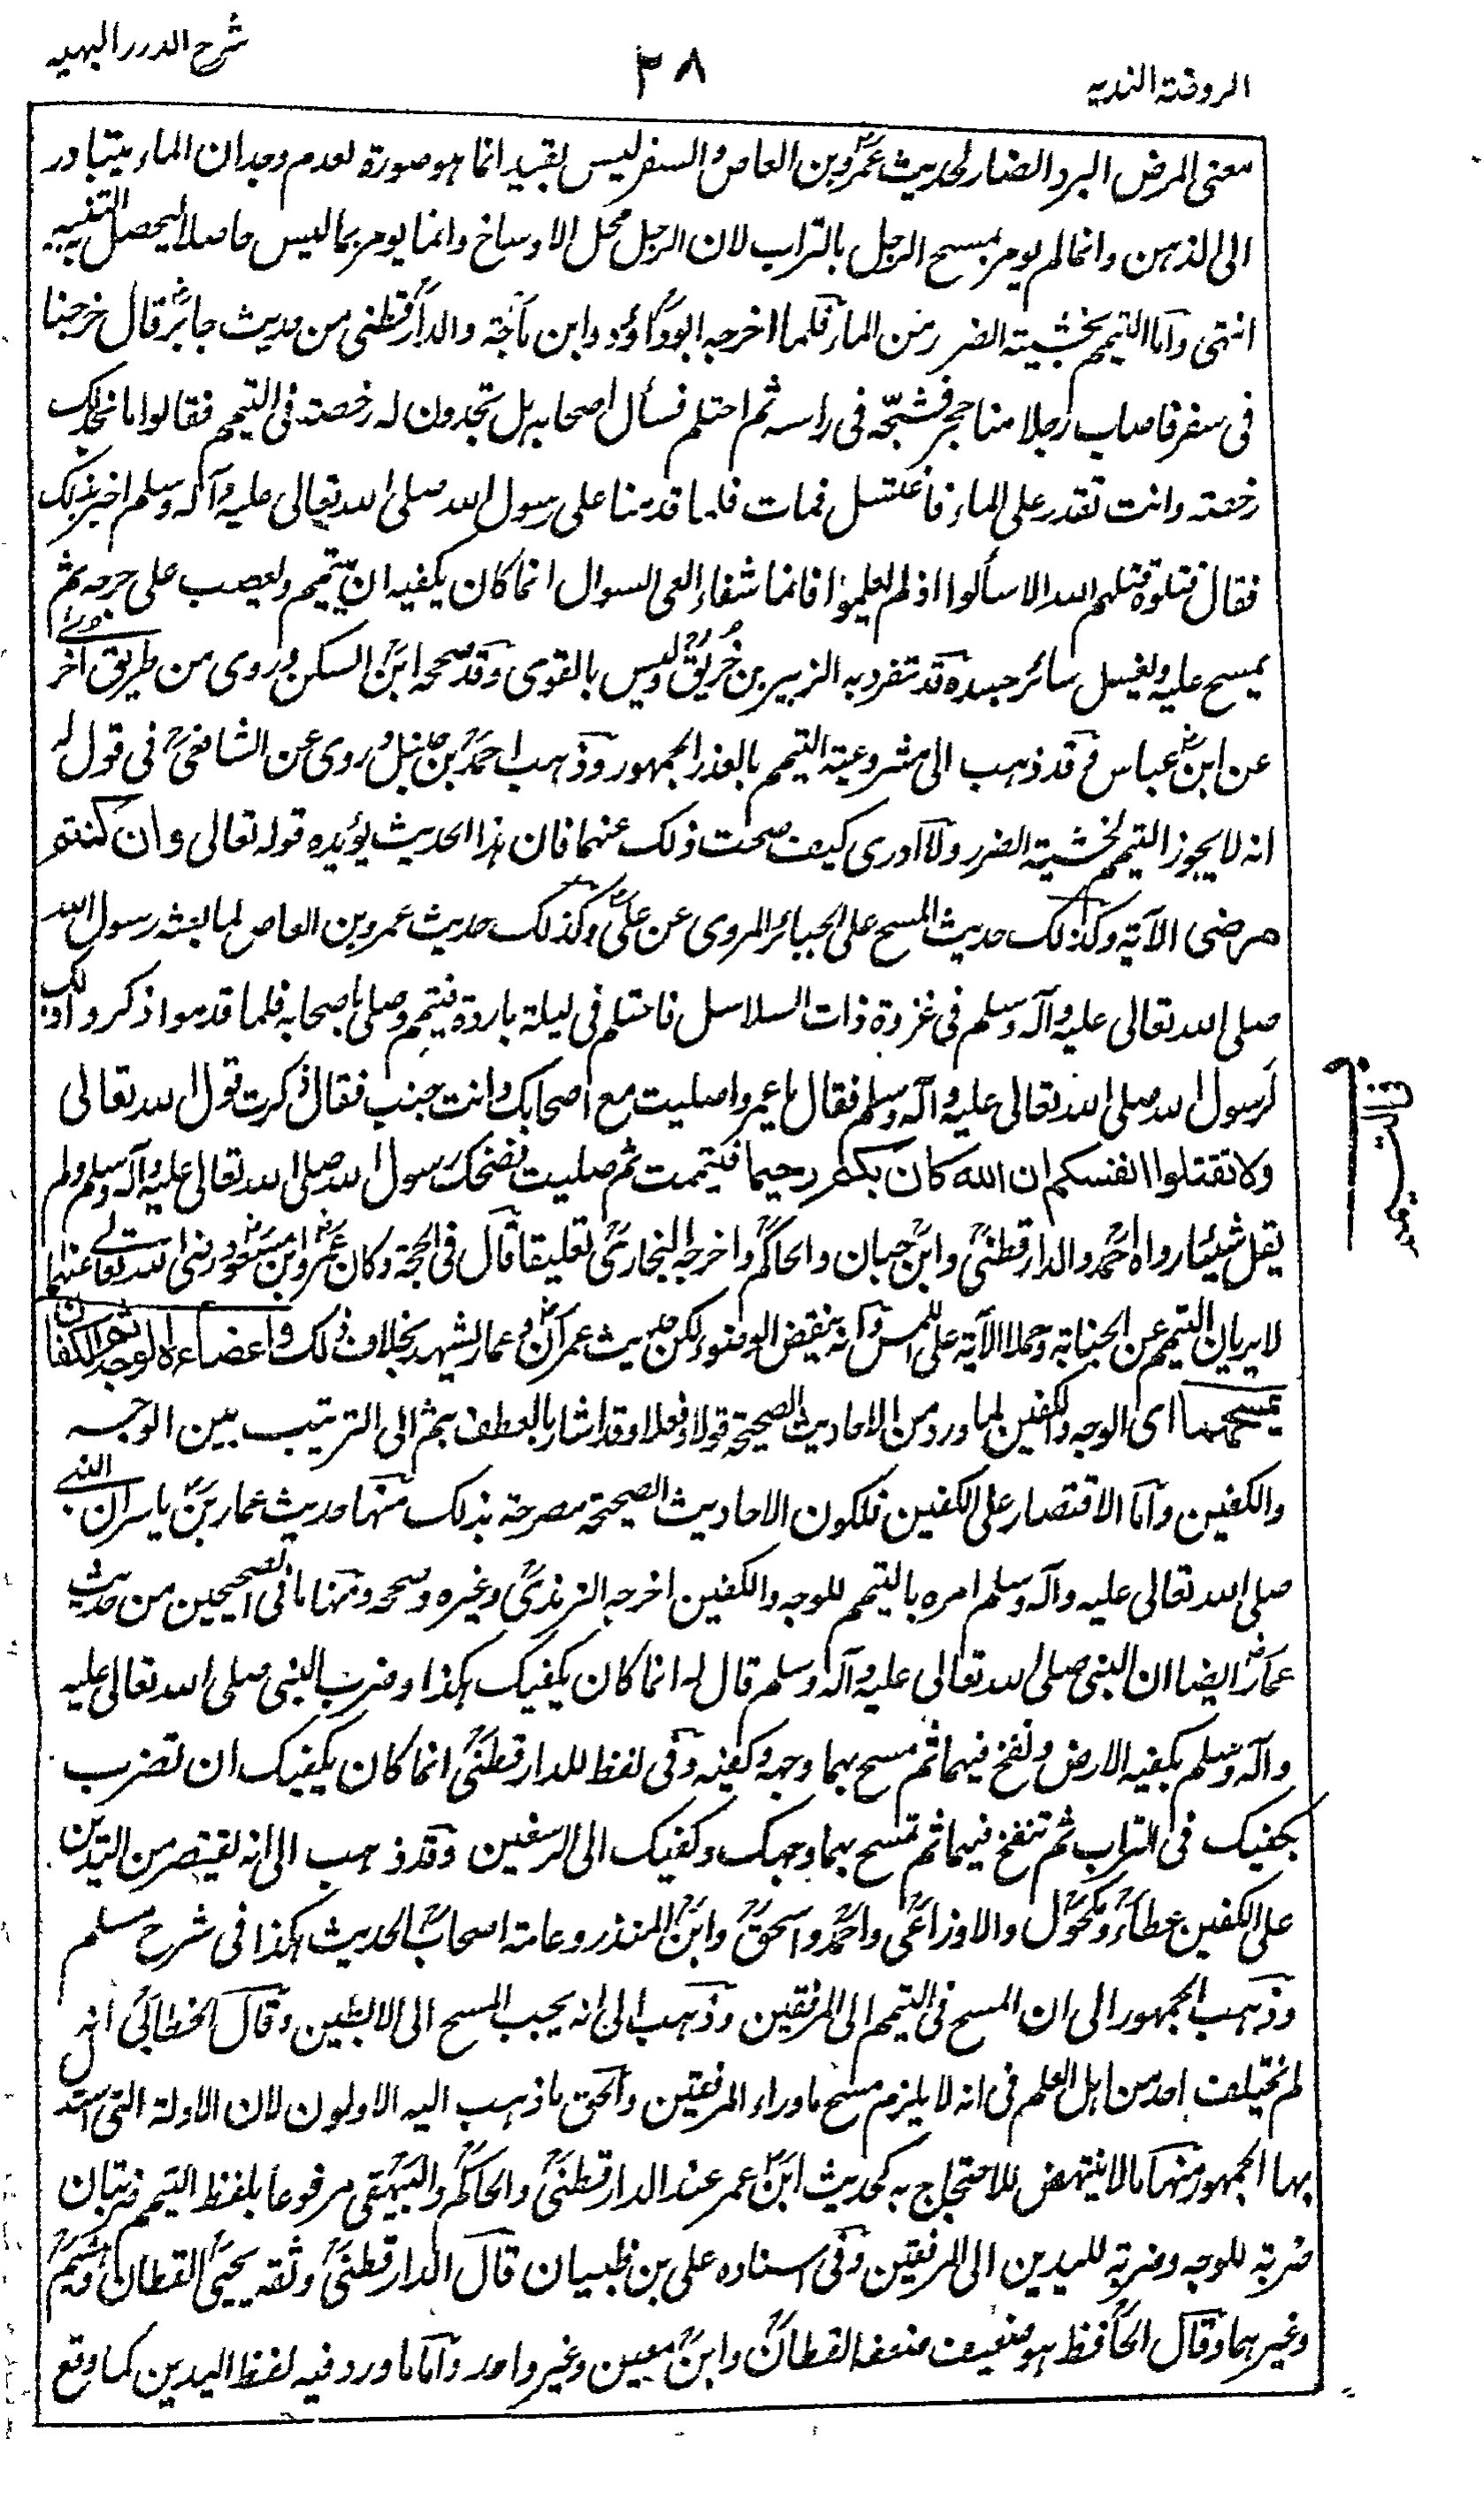 شرح الدرر البهيه
٣٨
الروضة النديه
معنى المرض البرد الضار لحديث عمرو بن العاص والسفر ليس بقيد انما هو صورة لعدم وجدان الماء يتبادر
الى الذهن وانما لم يومر بمسح الرجل بالتراب لان الرجل محل الاوساخ وانما يومر بما ليس حاصلا ليحصل به التنبيه
انتهى واما التيمم بخشية الضرر من الماء فلما اخرجه ابو داؤد وابن ماجة والدارقطنى من حديث جابر قال خرجنا
فى سفر فاصاب رجلا منا حجر فشجّه فى راسه ثم احتلم فسأل اصحابه هل تجدون له رخصة فى التيمم فقالوا ما نجد لك
رخصة وانت تقدر على الماء فاغتسل فمات فلما قدمنا على رسول الله صلى الله تعالى عليه وآله وسلم اخبر بذلك
فقال قتلوه قتلهم الله الا سألوا اذ لم يعلموا فانما شفاء العى السوال انما كان يكفيه ان يتيمم ويعصب على جرحه ثم
يمسح عليه ويغسل سائر جسده وقد تفرد به الزبير بن خُريق وليس بالقوى وقد صححه ابن السكن وروى من طريق اخرى
عن ابن عباس وقد ذهب الى مشروعية التيمم بالعذر الجمهور وذهب احمد بن حنبل وروى عن الشافعى فى قول له
انه لا يجوز التيمم لخشية الضرر ولا ادرى كيف صحت ذلك عنهما فان هذا الحديث يؤيده قوله تعالى وان كنتم
مرضى الآية وكذلك حديث المسح على الجبائر المروى عن على وكذلك حديث عمرو بن العاص لما بعثه رسول الله
صلى الله تعالى عليه وآله وسلم فى غزوة ذات السلاسل فاحتلم فى ليلة باردة فتيمم وصلى باصحابه فلما قدموا ذكروا ذلك
لرسول الله صلى الله تعالى عليه وآله وسلم فقال يا عمرو اصليت مع اصحابك وانت جنب فقال ذكرت قول الله تعالى
ولا تقتلوا انفسكم ان الله كان بكم رحيما فتيممت ثم صليت فضحك رسول الله صلى الله تعالى عليه وآله وسلم ولم
يقل شيئا رواه احمد والدارقطنى وابن حبان والحاكم واخرجه البخارى تعليقا قال فى الحجة وكان عمر وابن مسعود رضى الله تعالى عنهما
لا يريان التيمم عن الجنابة وحملا الآية على اللمس وانه ينقض الوضوء لكن حديث عمران وعمار يشهد بخلاف ذلك واعضاءه الوجه ثم الكفان
يمسحهما اى الوجه والكفين لما ورد من الاحاديث الصحيحة قولا وفعلا وقد اشار بالعطف بثم الى الترتيب بين الوجه
والكفين واما الاقتصار على الكفين فلكون الاحاديث الصحيحة مصرحة بذلك منها حديث عمار بن ياسر ان النبى
صلى الله تعالى عليه وآله وسلم امره بالتيمم للوجه والكفين اخرجه الترمذى وغيره وصححه ومنها ما فى الصحيحين من حديث
عمار ايضا ان النبى صلى الله تعالى عليه وآله وسلم قال له انما كان يكفيك هكذا وضرب النبى صلى الله تعالى عليه
وآله وسلم بكفيه الارض ونفخ فيهما ثم مسح بهما وجهه وكفيه وفى لفظ للدارقطنى انما كان يكفيك ان تضرب
بكفيك فى التراب ثم تنفخ فيهما ثم تمسح بهما وجهك وكفيك الى الرسغين وقد ذهب الى انه يقتصر من اليدين
على الكفين عطاء ومكحول والاوزاعى واحمد واسحق وابن المنذر وعامة اصحاب الحديث هكذا فى شرح مسلم
وذهب الجمهور الى ان المسح فى التيمم الى المرفقين وذهب الى انه يجب المسح الى الابطين وقال الخطابى انه
لم يختلف احد من اهل العلم فى انه لا يلزم مسح ما وراء المرفقين والحق ما ذهب اليه الاولون لان الادلة التى استدل
بها الجمهور منها ما لا ينتهض للاحتجاج به كحديث ابن عمر عند الدارقطنى والحاكم والبيهقى مرفوعا بلفظ التيمم ضربتان
ضربة للوجه وضربة لليدين الى المرفقين وفى اسناده على بن ظبيان قال الدارقطنى وثقه يحيى القطان وهشيم
وغيرهما وقال الحافظ هو ضعيف ضعفه القطان وابن معين وغير واحد واما ما ورد فيه لفظ اليدين كما وقع